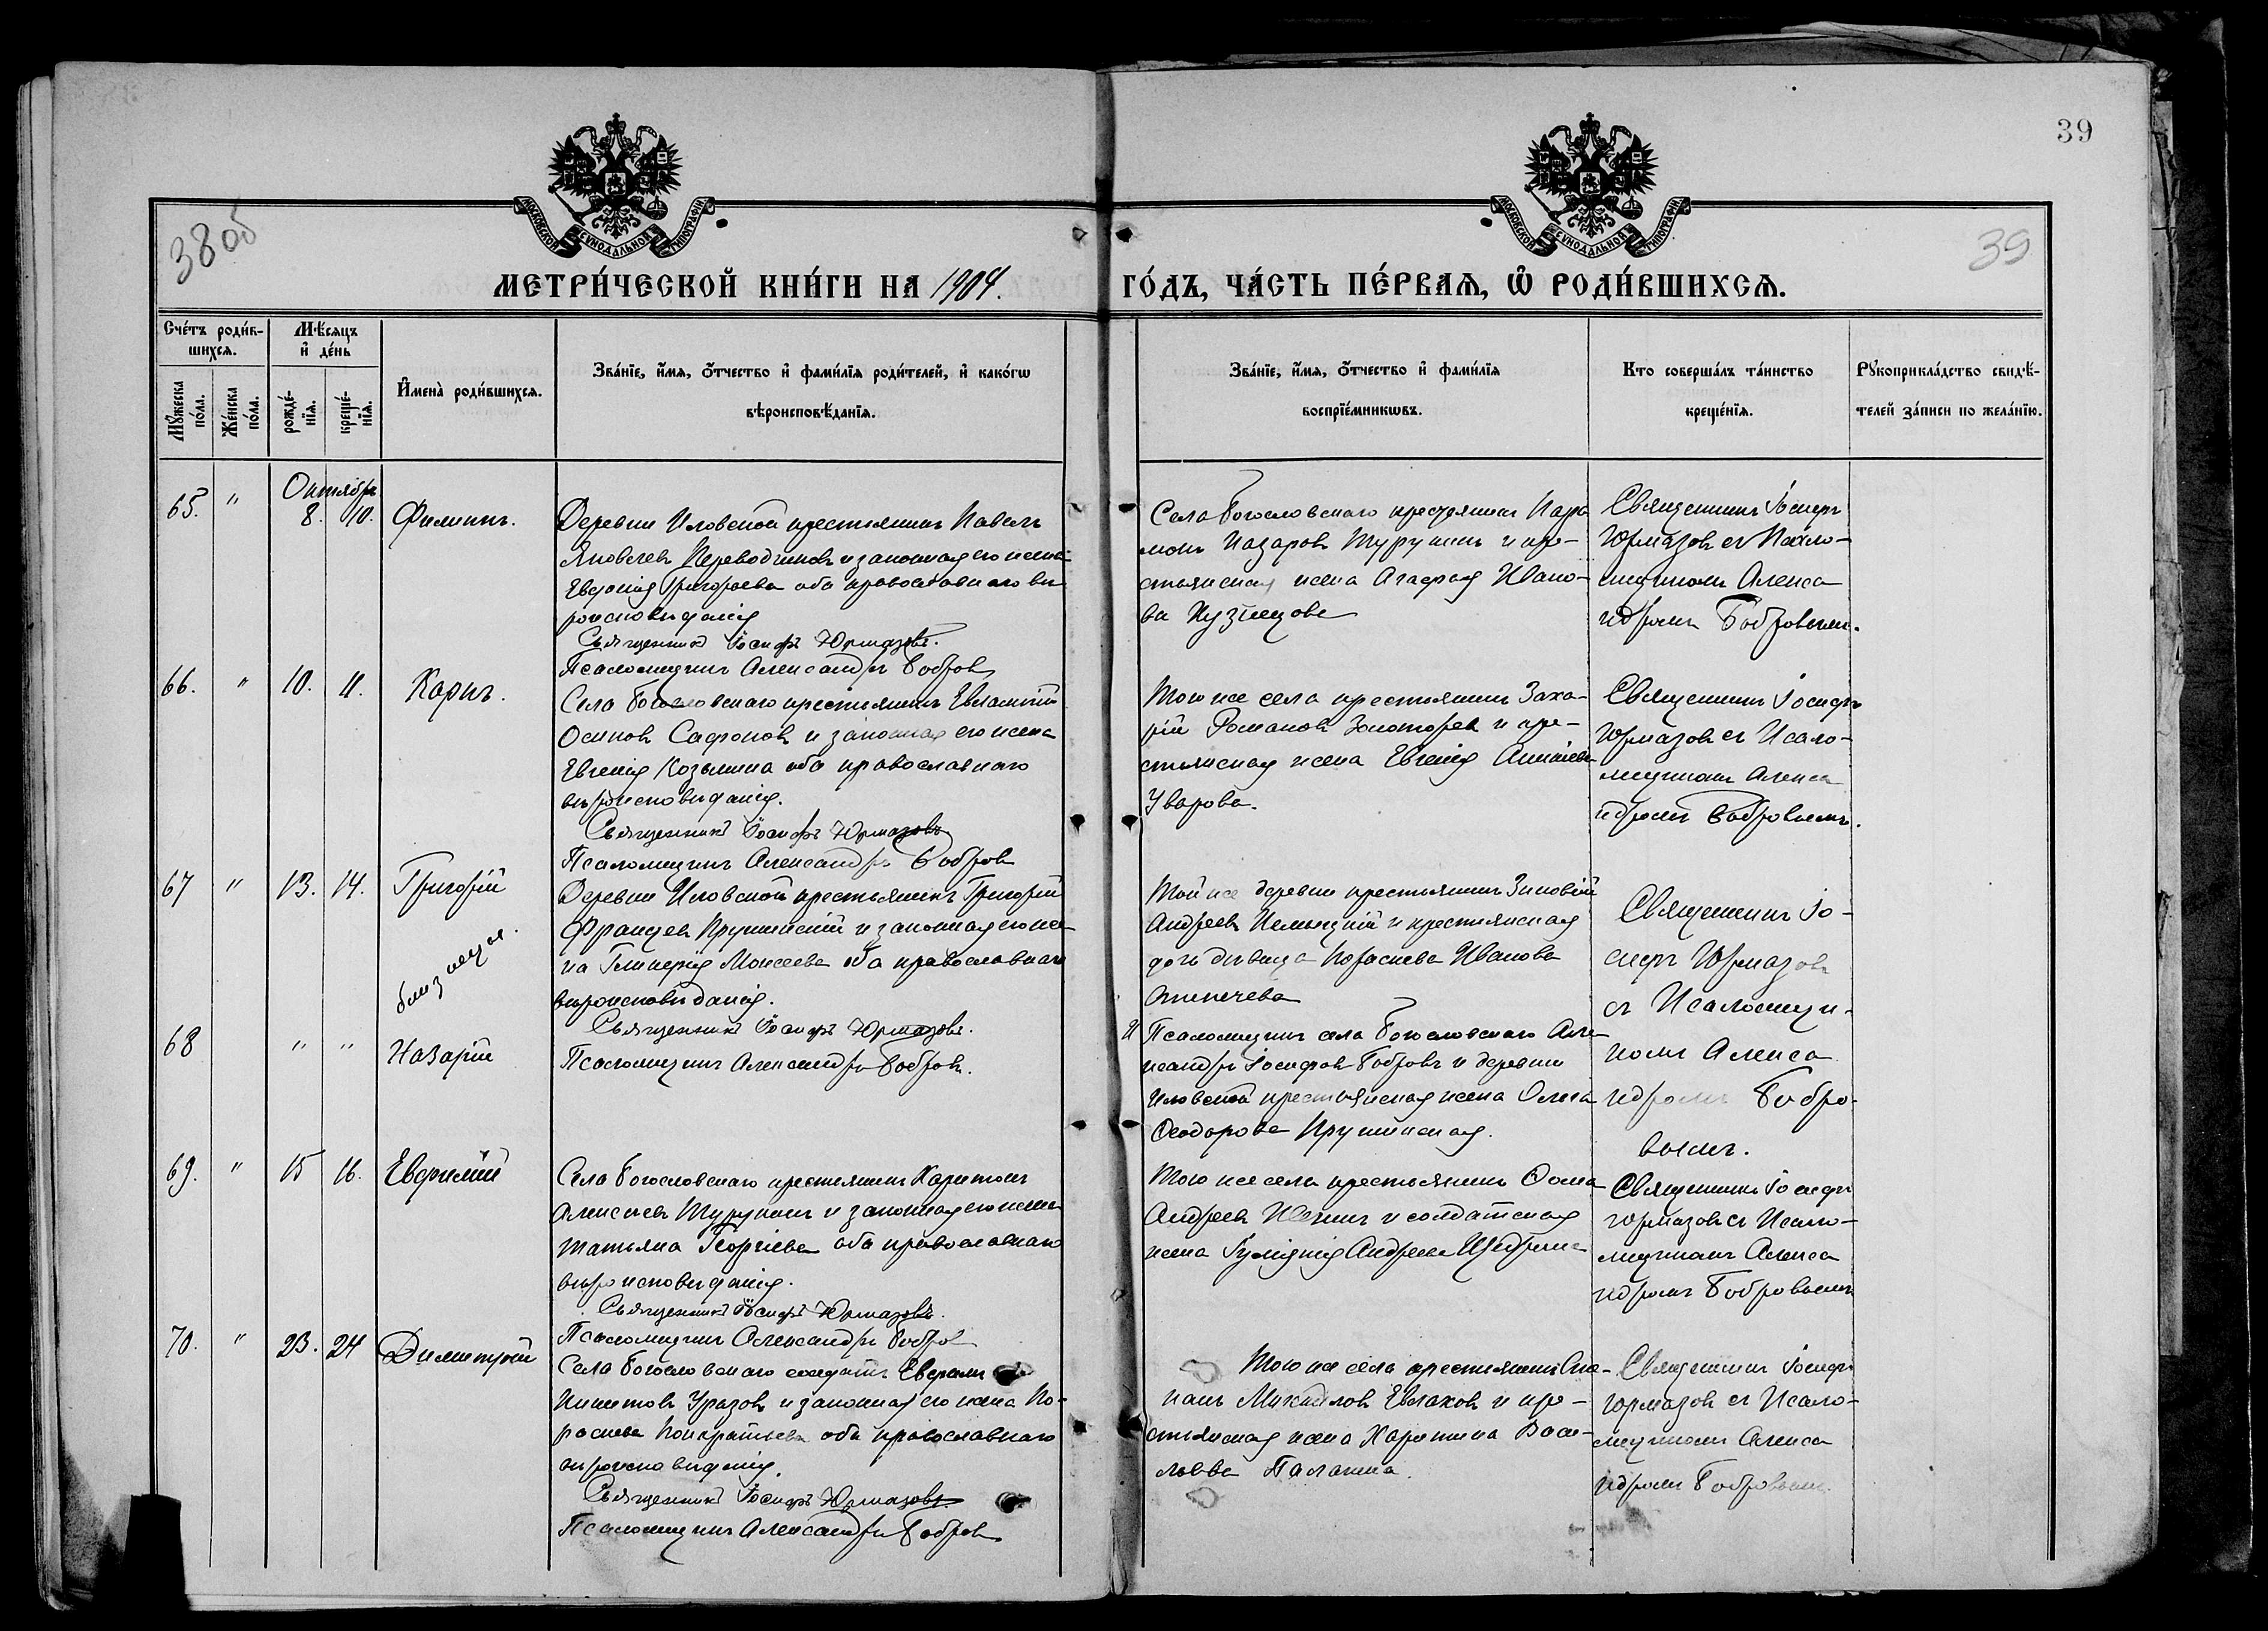 39
38 об
39
МОСКОВСКОЙ СѴНОДАЛЬНОЙ ТИПОГРАФІИ
МОСКОВСКОЙ СѴНОДАЛЬНОЙ ТИПОГРАФІИ
МЕТРИ́ЧЕСКОЙ КНИ́ГИ НА 1904.
ГО́ДЪ, ЧА́СТЬ ПЕ́РВАѦ, Ѡ҆ РОДИ́ВШИХСѦ.
Сче́тъ роди́в-
шихсѧ.
Мꙋ́жеска по́ла.
Же́нска по́ла.
Мѣ́сѧцъ
и҆ де́нь
рожде́-
нїѧ.
креще́-
нїѧ.
И҆мена̀ роди́вшихсѧ.
Зва́нїе, и҆́мѧ, ѻ҆́тчество и҆ фами́лїѧ роди́телей, и҆ како́гѡ
вѣроисповѣ́данїѧ.
Зва́нїе, и҆́мѧ, ѻ҆́тчество и҆ фами́лїѧ
воспрїе́мникѡвъ.
Кто соверша́лъ та́инство
креще́нїѧ.
Рꙋкоприкла́дство свидѣ́-
телей за́писи по жела́нїю.
Октябрь
65. " 8. 10. Филиппъ.
Деревни Иловской крестьянинъ Павелъ
Яковлевъ Переводчиковъ и законная его жена
Евдокія Григорьева оба православнаго вѣ-
роисповѣданія
Священникъ Іосифъ Юрмазовъ.
Псаломщикъ Александръ Бобровъ
Села Богословскаго крестьянинъ Пара
монъ Назаровъ Турукинъ и кре-
стьянская жена Агафья Ивано-
ва Кузнецова
Священникъ Іосифъ
Юрмазовъ съ Псало-
мщикомъ Алекса
ндромъ Бобровымъ.
66. " 10. 11. Карпъ.
Села Богословскаго крестьянинъ Евлампій
Осиповъ Сафоновъ и законная его жена
Евгенія Козьмина оба православнаго
вѣроисповѣданія.
Священникъ Іосифъ Юрмазовъ
Псаломщикъ Александръ Бобровъ
Того же села крестьянинъ Заха-
рій Романовъ Золоторевъ и кре-
стьянская жена Евгенія
Уварова.
Священникъ Іосифъ
Юрмазовъ съ Псало-
мщикомъ Алекса
ндромъ Бобровымъ.
67 " 13. 14. Григорій
близнецы.
Деревни Иловской крестьянинъ Григорій
Францевъ Крушинскій и законная его же-
на Гликерія Моисеева оба православнаго
вѣроисповѣданія.
Священникъ Іосифъ Юрмазовъ.
Псаломщикъ Александръ Бобровъ.
Той же деревни крестьянинъ Зиновій
Андреевъ и крестьянская
дочь дѣвица Параскева Иванова
68 " " Назарій
Псаломщикъ села Богословскаго Але-
ксандръ Іосифовъ Бобровъ и деревни
Иловской крестьянская жена Ольга
Ѳеодорова Крушинская.
Священникъ Іо-
сифъ Юрмазовъ
съ Псаломщи-
комъ Алекса
ндромъ Бобро-
вымъ.
69. " 15 16. Евфимій
Села Богословскаго крестьянинъ Харитонъ
Алексѣевъ Турукинъ и законная его жена
Татьяна Георгіева оба православнаго
вѣроисповѣданія.
Священникъ Іосифъ Юрмазовъ.
Псаломщикъ Александръ Бобровъ
Того же села крестьянинъ Ѳома
Андреевъ и солдатская
жена Іуліанія Андреева Щедрина
Священникъ Іосифъ
Юрмазовъ съ Псало-
мщикомъ Алекса
ндромъ Бобровымъ
70. " 23. 24 Димитрій
Села Богословскаго солдатъ
Никитовъ Уразовъ и законная его жена Па-
раскева Панкратьева оба православнаго
вѣроисповѣданія.
Священникъ Іосифъ Юрмазовъ
Псаломщикъ Александръ Бобровъ
Того же села крестьянинъ Сте-
панъ Михайловъ Евлаховъ и кре-
стьянская жена Харитина Васи-
льева Палагина.
Священникъ Іосифъ
Юрмазовъ съ Псало-
мщикомъ Алекса
ндромъ Бобровымъ.